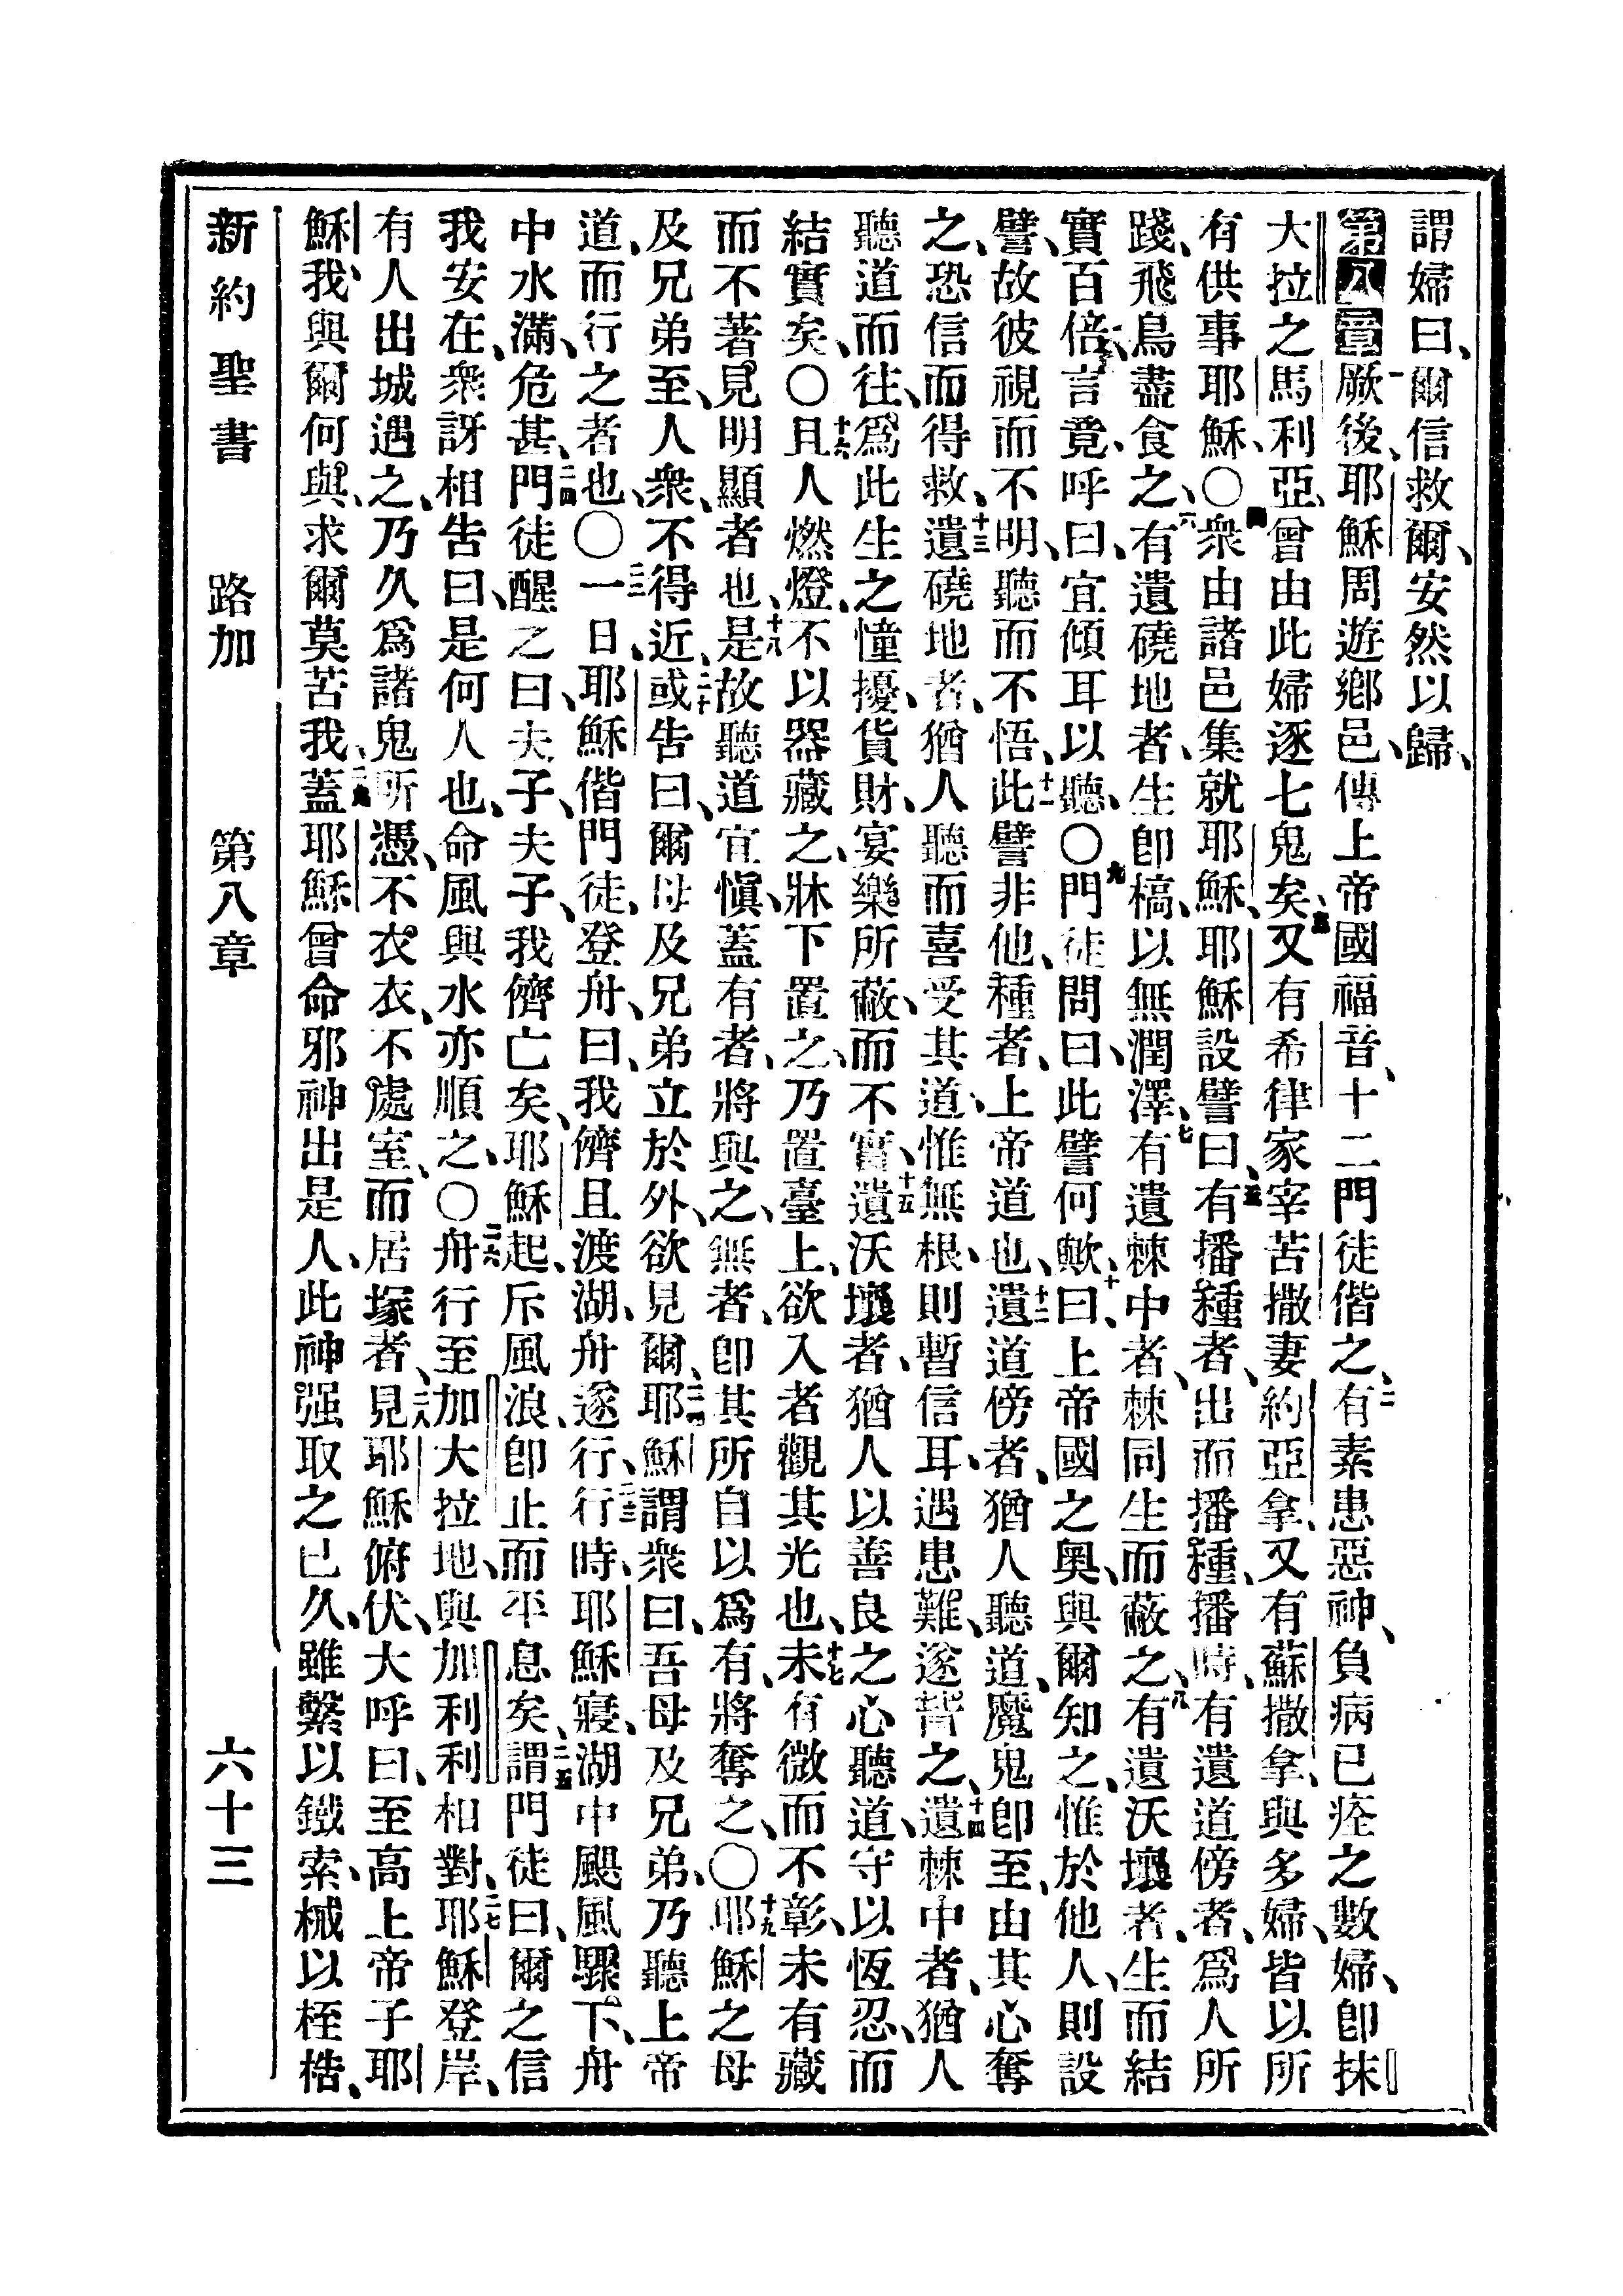 謂婦曰、爾信救爾、安然以歸、
第八章一厥後、耶穌周遊鄉邑、傳上帝國福音、十二門徒偕之、二有素患惡神、負病已痊之數婦、卽抹
大拉之馬利亞、曾由此婦逐七鬼矣、三又有希律家宰苦撒妻約亞拿、又有蘇撒拿、與多婦、皆以所
有供事耶穌、〇四衆由諸邑集就耶穌、耶穌設譬曰、五有播種者、出而播種、播時、有遺道傍者、爲人所
踐、飛鳥盡食之、六有遺磽地者、生卽槁、以無潤澤、七有遺棘中者、棘同生而蔽之、八有遺沃壤者、生而結
實百倍、言竟、呼曰、宜傾耳以聽、〇九門徒問曰、此譬何歟、十曰、上帝國之奧、與爾知之、惟於他人、則設
譬、故彼視而不明、聽而不悟、十一此譬非他、種者、上帝道也、十二遺道傍者、猶人聽道、魔鬼卽至、由其心奪
之、恐信而得救、十三遺磽地者、猶人聽而喜受其道、惟無根、則暫信耳、遇患難、遂背之、十四遺棘中者、猶人
聽道而往、爲此生之憧擾、貨財、宴樂所蔽、而不實、十五遺沃壤者、猶人以善良之心聽道、守以恆忍、而
結實矣、〇十六且人燃燈、不以器藏之、牀下置之、乃置臺上、欲入者觀其光也、十七未有微而不彰、未有藏
而不著見明顯者也、十八是故聽道宜愼、蓋有者、將與之、無者、卽其所自以爲有、將奪之、〇十九耶穌之母
及兄弟至、人衆、不得近、二十或告曰、爾母及兄弟立於外、欲見爾、二一耶穌謂衆曰、吾母及兄弟、乃聽上帝
道、而行之者也、〇二二一日、耶穌偕門徒、登舟、曰、我儕且渡湖、舟遂行、二三行時、耶穌寢、湖中颶風驟下、舟
中水滿、危甚、二四門徒醒之曰、夫子、夫子、我儕亡矣、耶穌起、斥風浪、卽止而平息矣、二五謂門徒曰、爾之信
我安在、衆訝相告曰、是何人也、命風與水亦順之、〇二六舟行至加大拉地、與加利利相對、二七耶穌登岸、
有人出城遇之、乃久爲諸鬼所憑、不衣衣、不處室、而居塚者、二八見耶穌俯伏、大呼曰、至高上帝子耶
穌、我與爾何與、求爾莫苦我、二九蓋耶穌曾命邪神出是人、此神强取之已久、雖繫以鐵索、械以桎梏、
新約聖書　路加　第八章　六十三